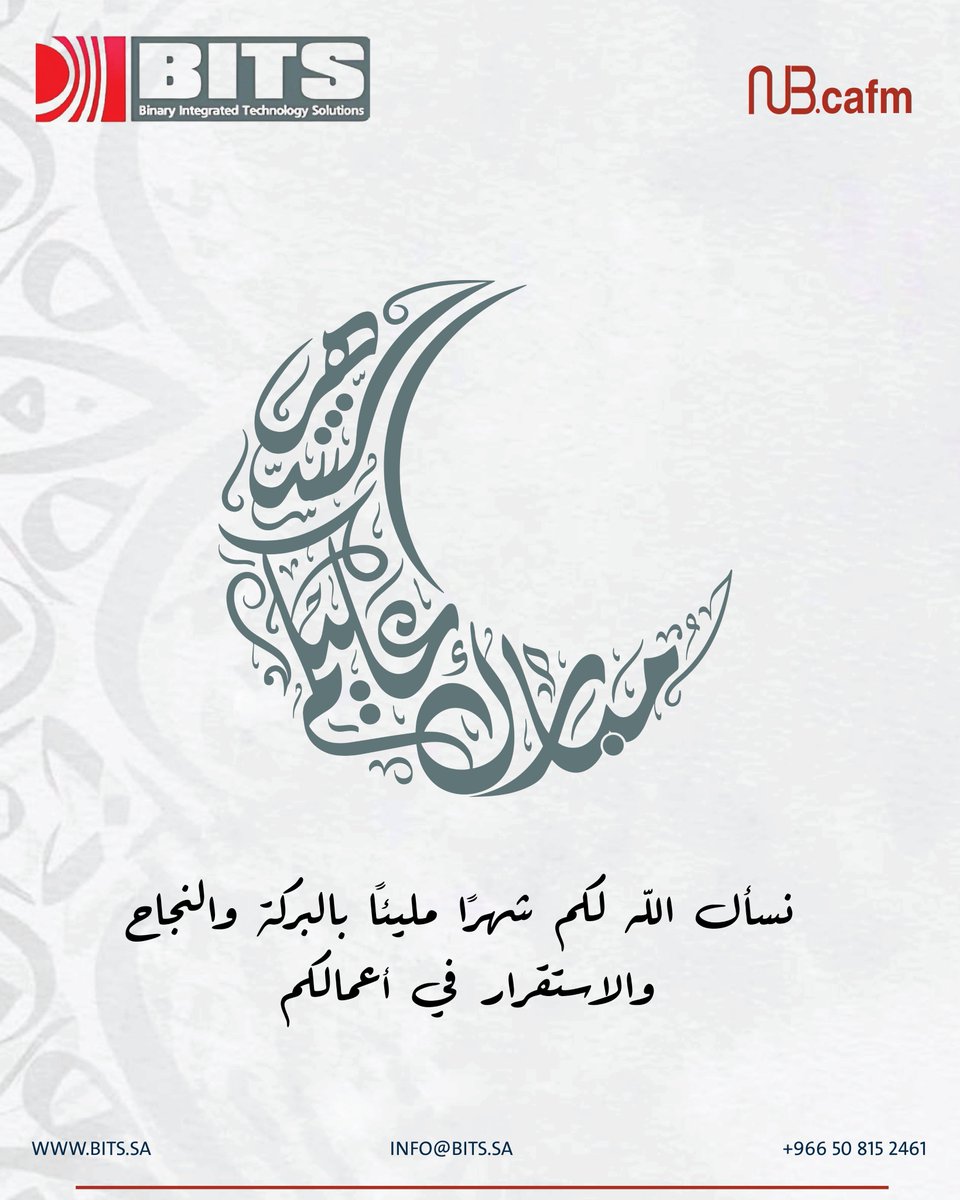 BITS
Binary Integrated Technology Solutions
NB.cafm
مبارك عليكم الشهر
نسأل الله لكم شهرًا مليئًا بالبركة والنجاح
والاستقرار في أعمالكم
WWW.BITS.SA
INFO@BITS.SA
+966 50 815 2461